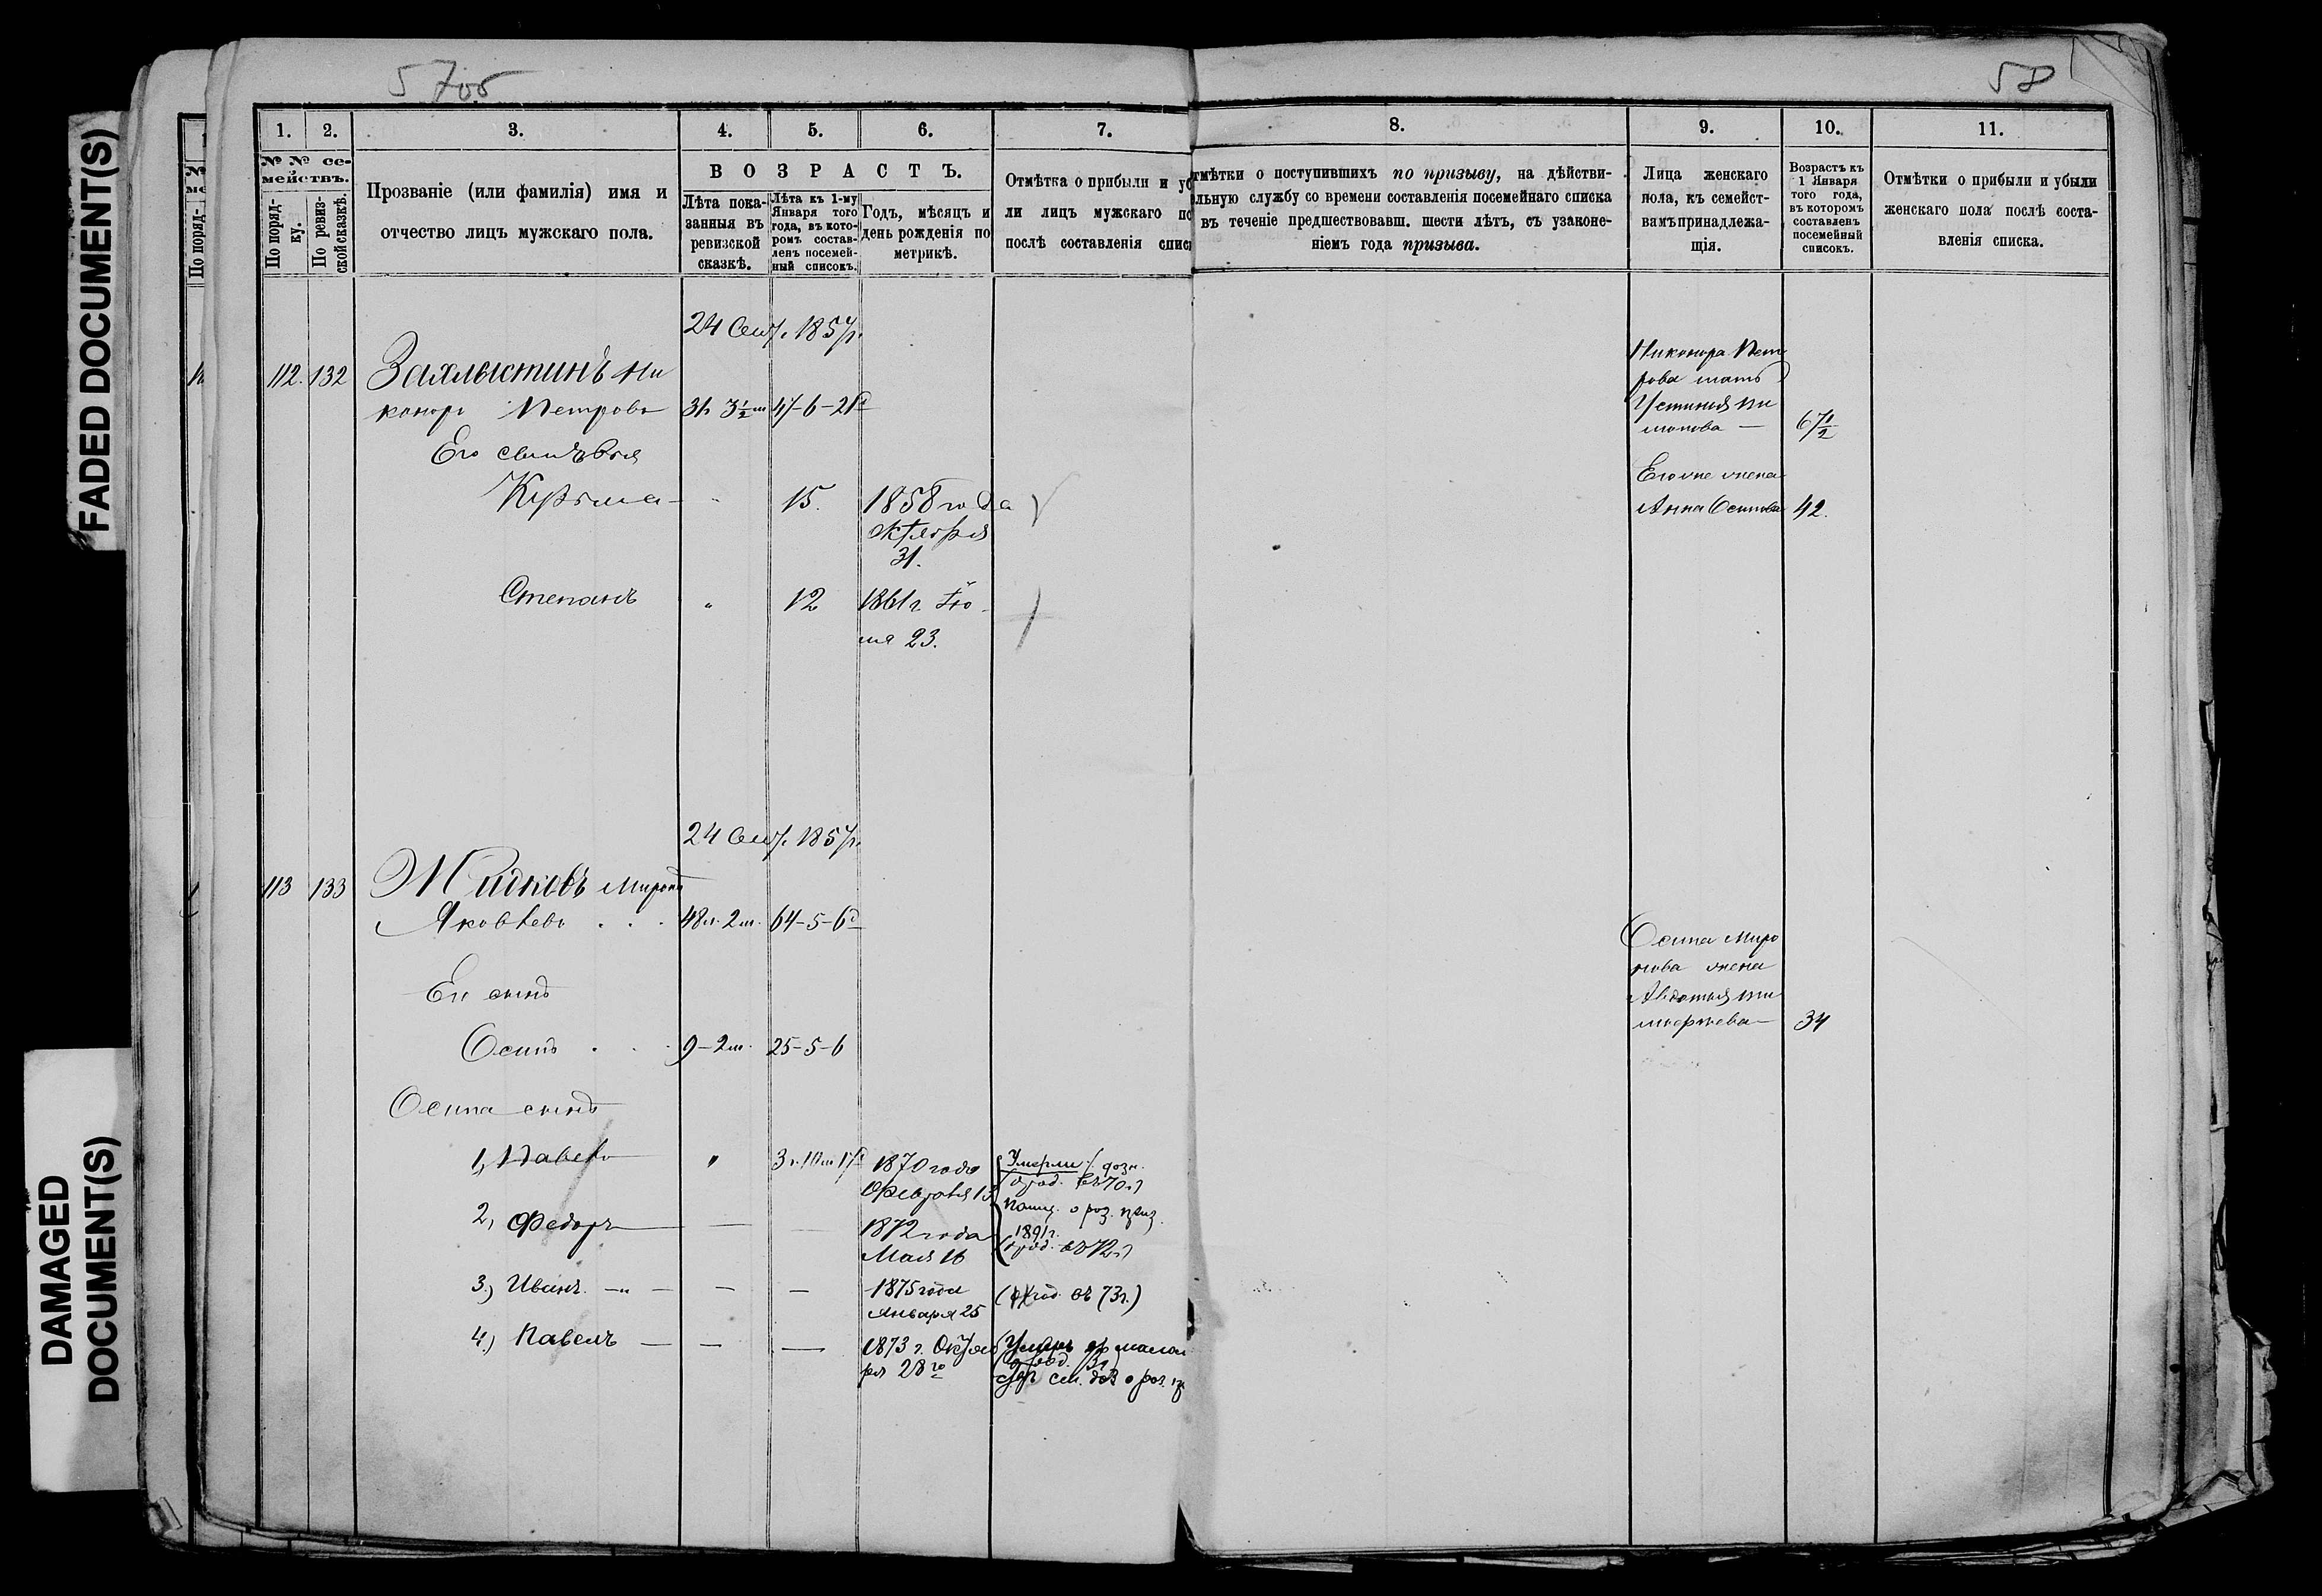 FADED DOCUMENT(S)
DAMAGED
DOCUMENT(S)
58
1.
2.
3.
4.
5.
6.
7.
8.
9.
10.
11.
№ № се-
мействъ.
По поряд-
ку.
По ревиз-
ской сказкѣ.
Прозваніе (или фамилія) имя и
отчество лицъ мужскаго пола.
ВОЗРАСТЪ.
Лѣта пока-
занныя въ
ревизской
сказкѣ.
Лѣта къ 1-му
Января того
года, въ кото-
ромъ состав-
ленъ посемей-
ный списокъ.
Годъ, мѣсяцъ и
день рожденія по
метрикѣ.
Отмѣтка о прибыли и уб
ли лицъ мужскаго по
послѣ составленія спис
тмѣтки о поступившихъ по призыву, на дѣйстви-
льную службу со времени составленія посемейнаго списка
въ теченіе предшествовавш. шести лѣтъ, съ узаконе-
ніемъ года призыва.
Лица женскаго
пола, къ семейст-
вамъ принадлежа-
щія.
Возрастъ къ
1 Января
того года,
въ которомъ
составленъ
посемейный
списокъ.
Отмѣтки о прибыли и убыли
женскаго пола послѣ соста-
вленія списка.
24 Сент. 1857г.
112. 132 Захлыстинъ Ни
каноръ Петровъ 31 3½м 47-6-21д
Его сыновья
Кузьма 15. 1858 года
Октября
31.
Степанъ 12 1861г Ію
ля 23.
Никонора Пет
рова мать
Устинья
67½
Его же жена
Анна Осипова 42.
24 Сент. 1857г.
113 133 Жидковъ Миронъ
Яковлевъ 48л. 2м. 64-5-6д
Ег сынъ
Осипъ 9-2м. 25-5-6
Осипа сынъ
1, Павелъ 3 г. 10м 17д 1870 года
Февраля 13
Умерли
2, Федоръ 1872 года
Мая 16
1891г.
3.) Иванъ. 1875 года
Января 25
(род. въ 73г.)
4.) Павелъ 1873 г. Октяб
ря 28го
Умеръ
Осипа Миро
нова жена
Авдотья
34